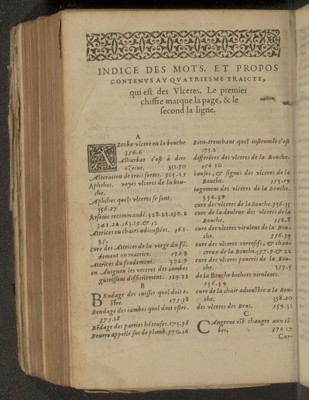 INDICE DES MOTS, ET PROPOS
CONTENVS AV QVATRIESME TRAICTE,
qui est des Vlceres. Le premier
chiffre marque la page, & le
second la ligne.
A
vlcere en la bouche
356.6
c'est à dire
351.30
Alteration de trois sortes. 355.12
Aphthes. voyez vlceres de la bou-
che.
Aphthes quels vlceres se sont.
356.27
Arsenic recommandé.
Attrices ou chairs adioustées. 363.
35.
cure des Attrices de la verge du fi.
dement ou matrice. 372.9
Attrices du fondement. 372.9
en Auignon les vlceres des iambes
guerissent difficilement. 329.22
B
BEndage des cuisses quel doit e-
stre. 375.38
Bendage des iambes quel doit estre.
375.28
Bédage des parties hôteuses. 375.38
Beurre appellé suc de plomb.
Bien-trenchant quel instrumét c'est
175.2
differéces des vlceres de la Bouche.
356.26
causes, & signes des vlceres de la
Bouche.
iugement des vlceres de la Bouche.
356.38
cure des vlceres de la Bouche. 356.35
cure de la douleur des vlceres de la
Bouche. 358.8
cure des vlceres virulens de la Bou-
che. 356.39
cure des vlceres corrosifs, & chan-
creux de la Bouche. 357.9. & 22
cure des vlceres pourris de la Bou-
che. 357.5
de la Bouche bochets virulents.
156.39
cure de la chair adioustée a la Bou-
che. 358.20
des vlceres des Bras. 359.31
C
CAngrené est changée aux al-
bes. 370.17
Can-